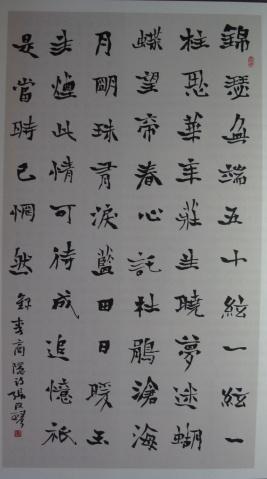 錦瑟無端五十絃一絃一
柱思華年莊生曉夢迷蝴
蝶望帝春心託杜鵑滄海
月朙珠有淚藍田日暖玉
生煙此情可待成追憶祇
是當時已惘然 錄李商隱詩